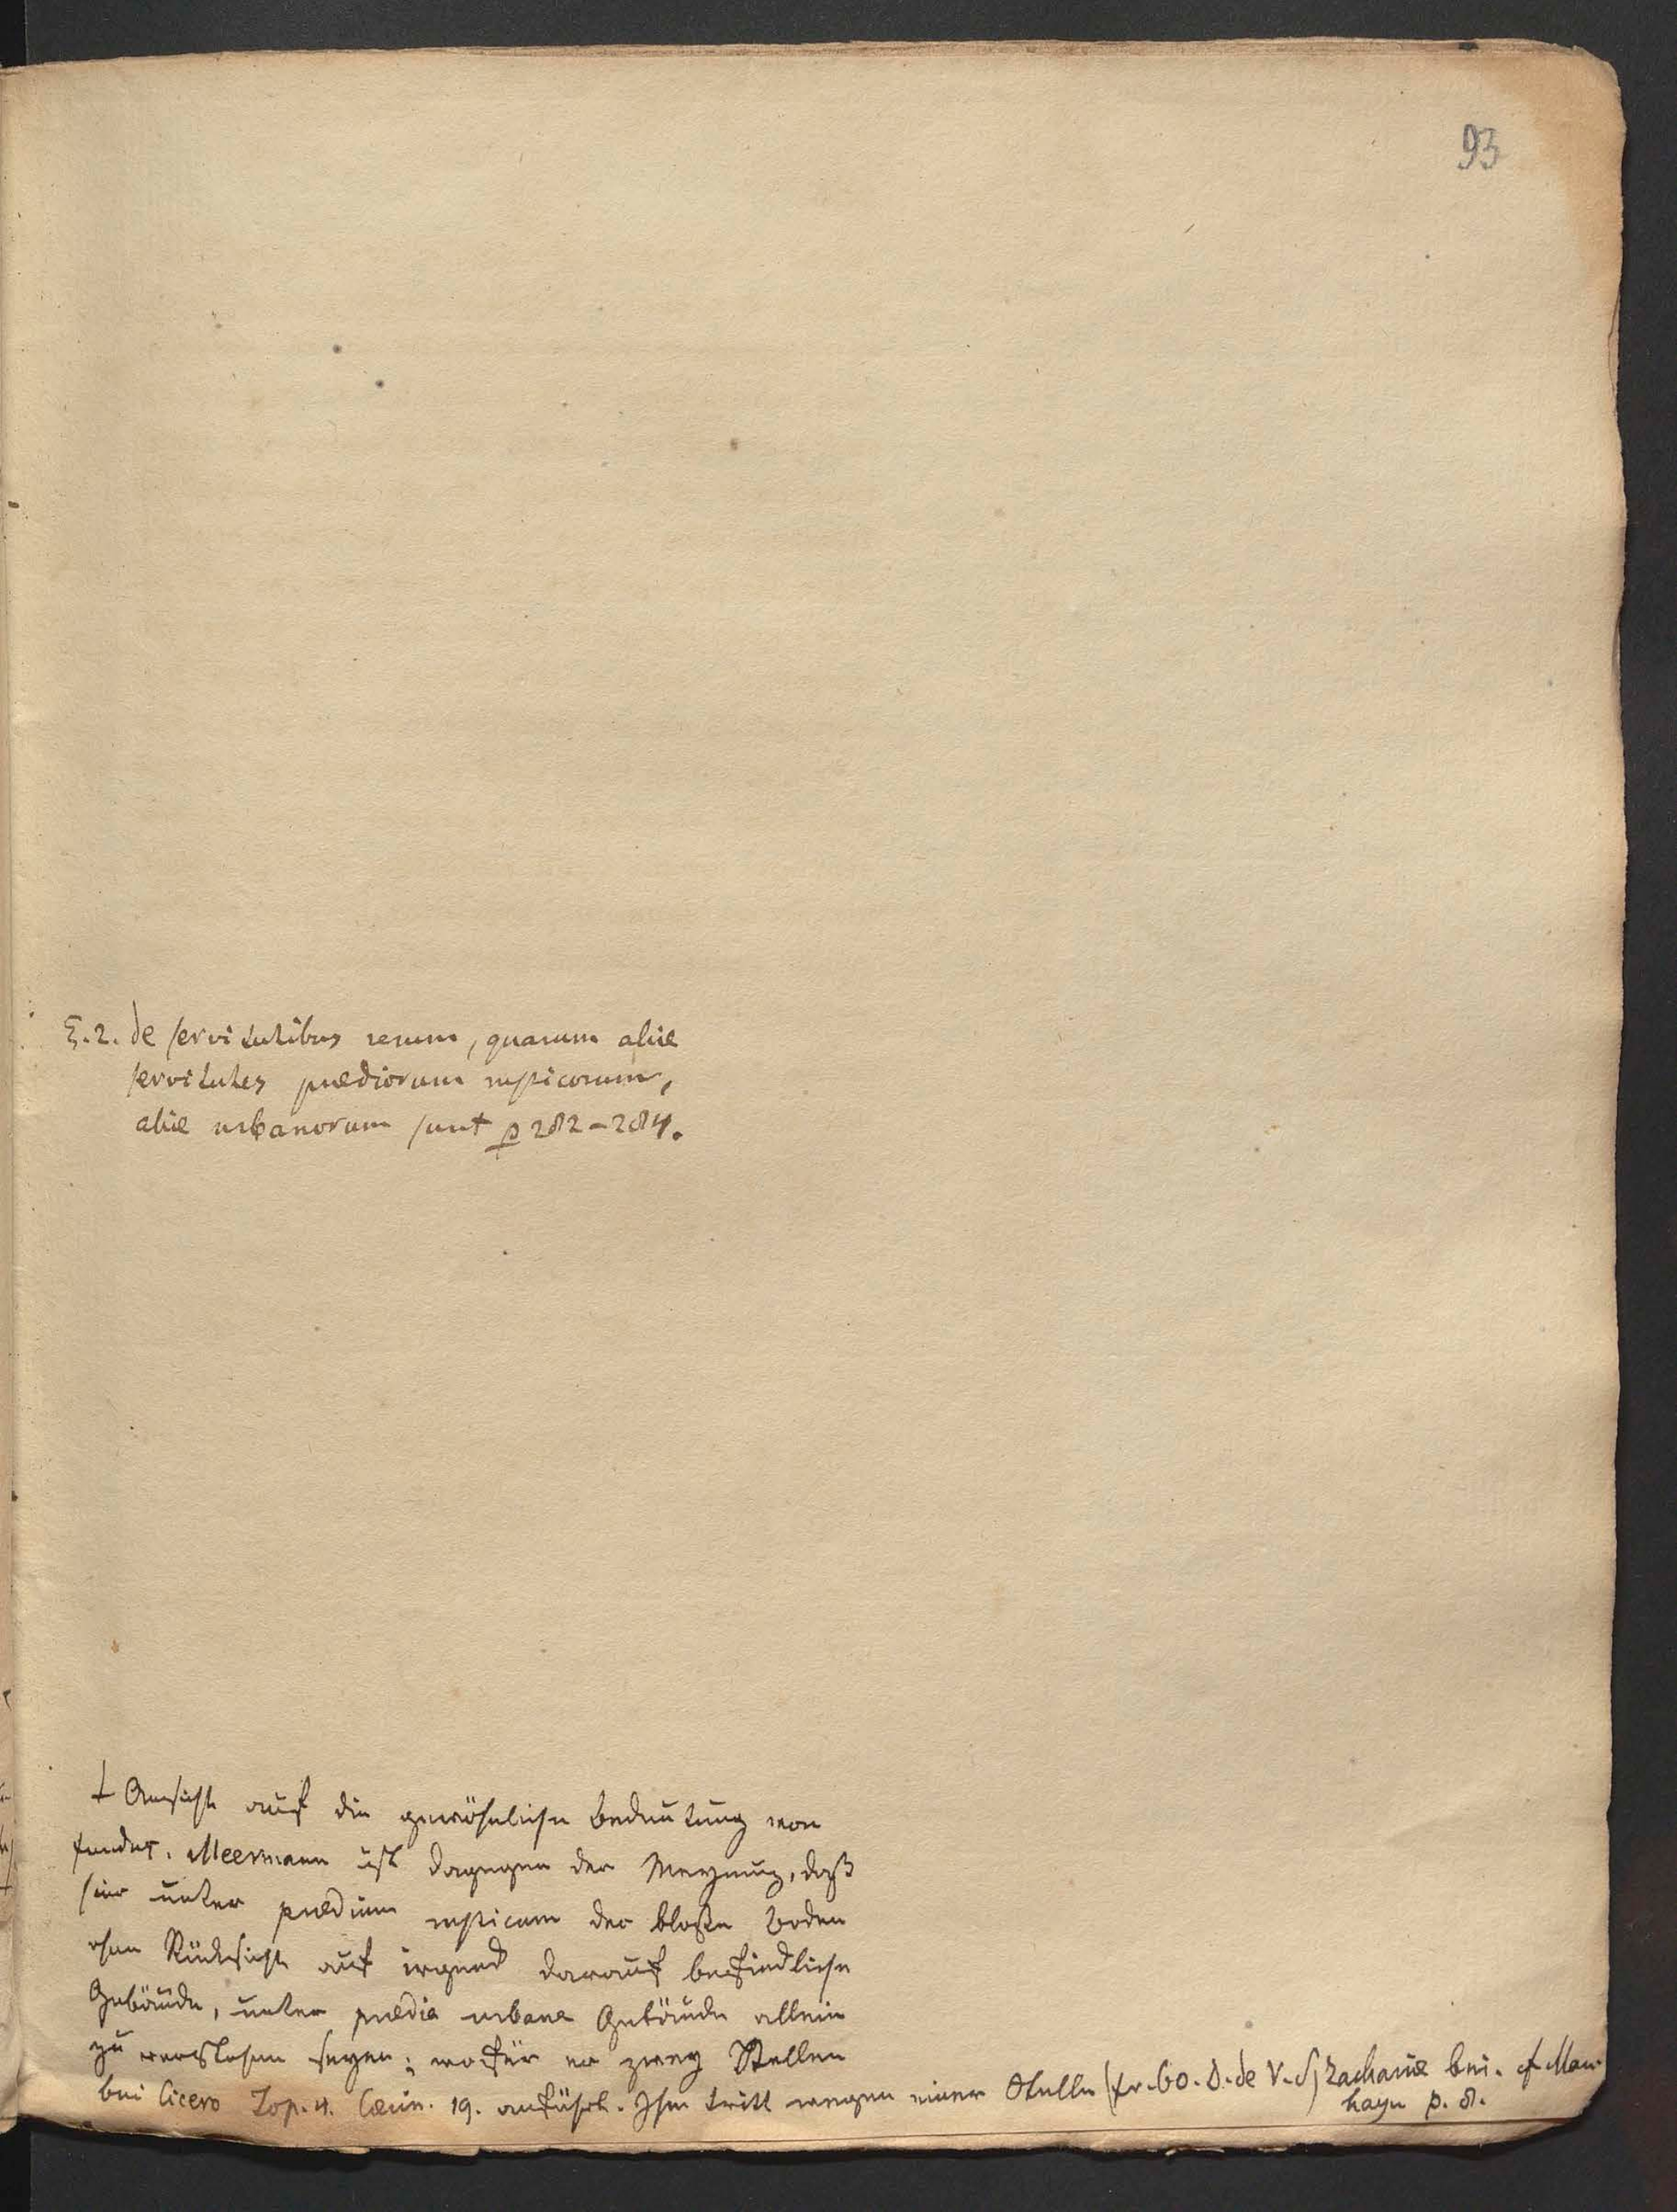 93
§.2. de servitutibus rerum, quarum aliæ
servitutes prædiorum rusticorum,
aliæ urbanorum sunt p 282-284.
Ansicht auf die gewöhnliche Bedeutung von
fundus. Meermann ist dagegen der Meynung, daß
hier unter prædium rusticum der bloße Boden
ohne Rücksicht auf irgend darauf befindliche
Gebäude, unter prædia urbana Gebäude allein
zu verstehen seyen; wofür er zwey Stellen
bei Cicero Top. 4. Cæcin. 19. anführt. Ihm tritt wegen einer Stelle (fr. 60. D. de V. S) Zachariæ bei. cf
hayn p. 8.